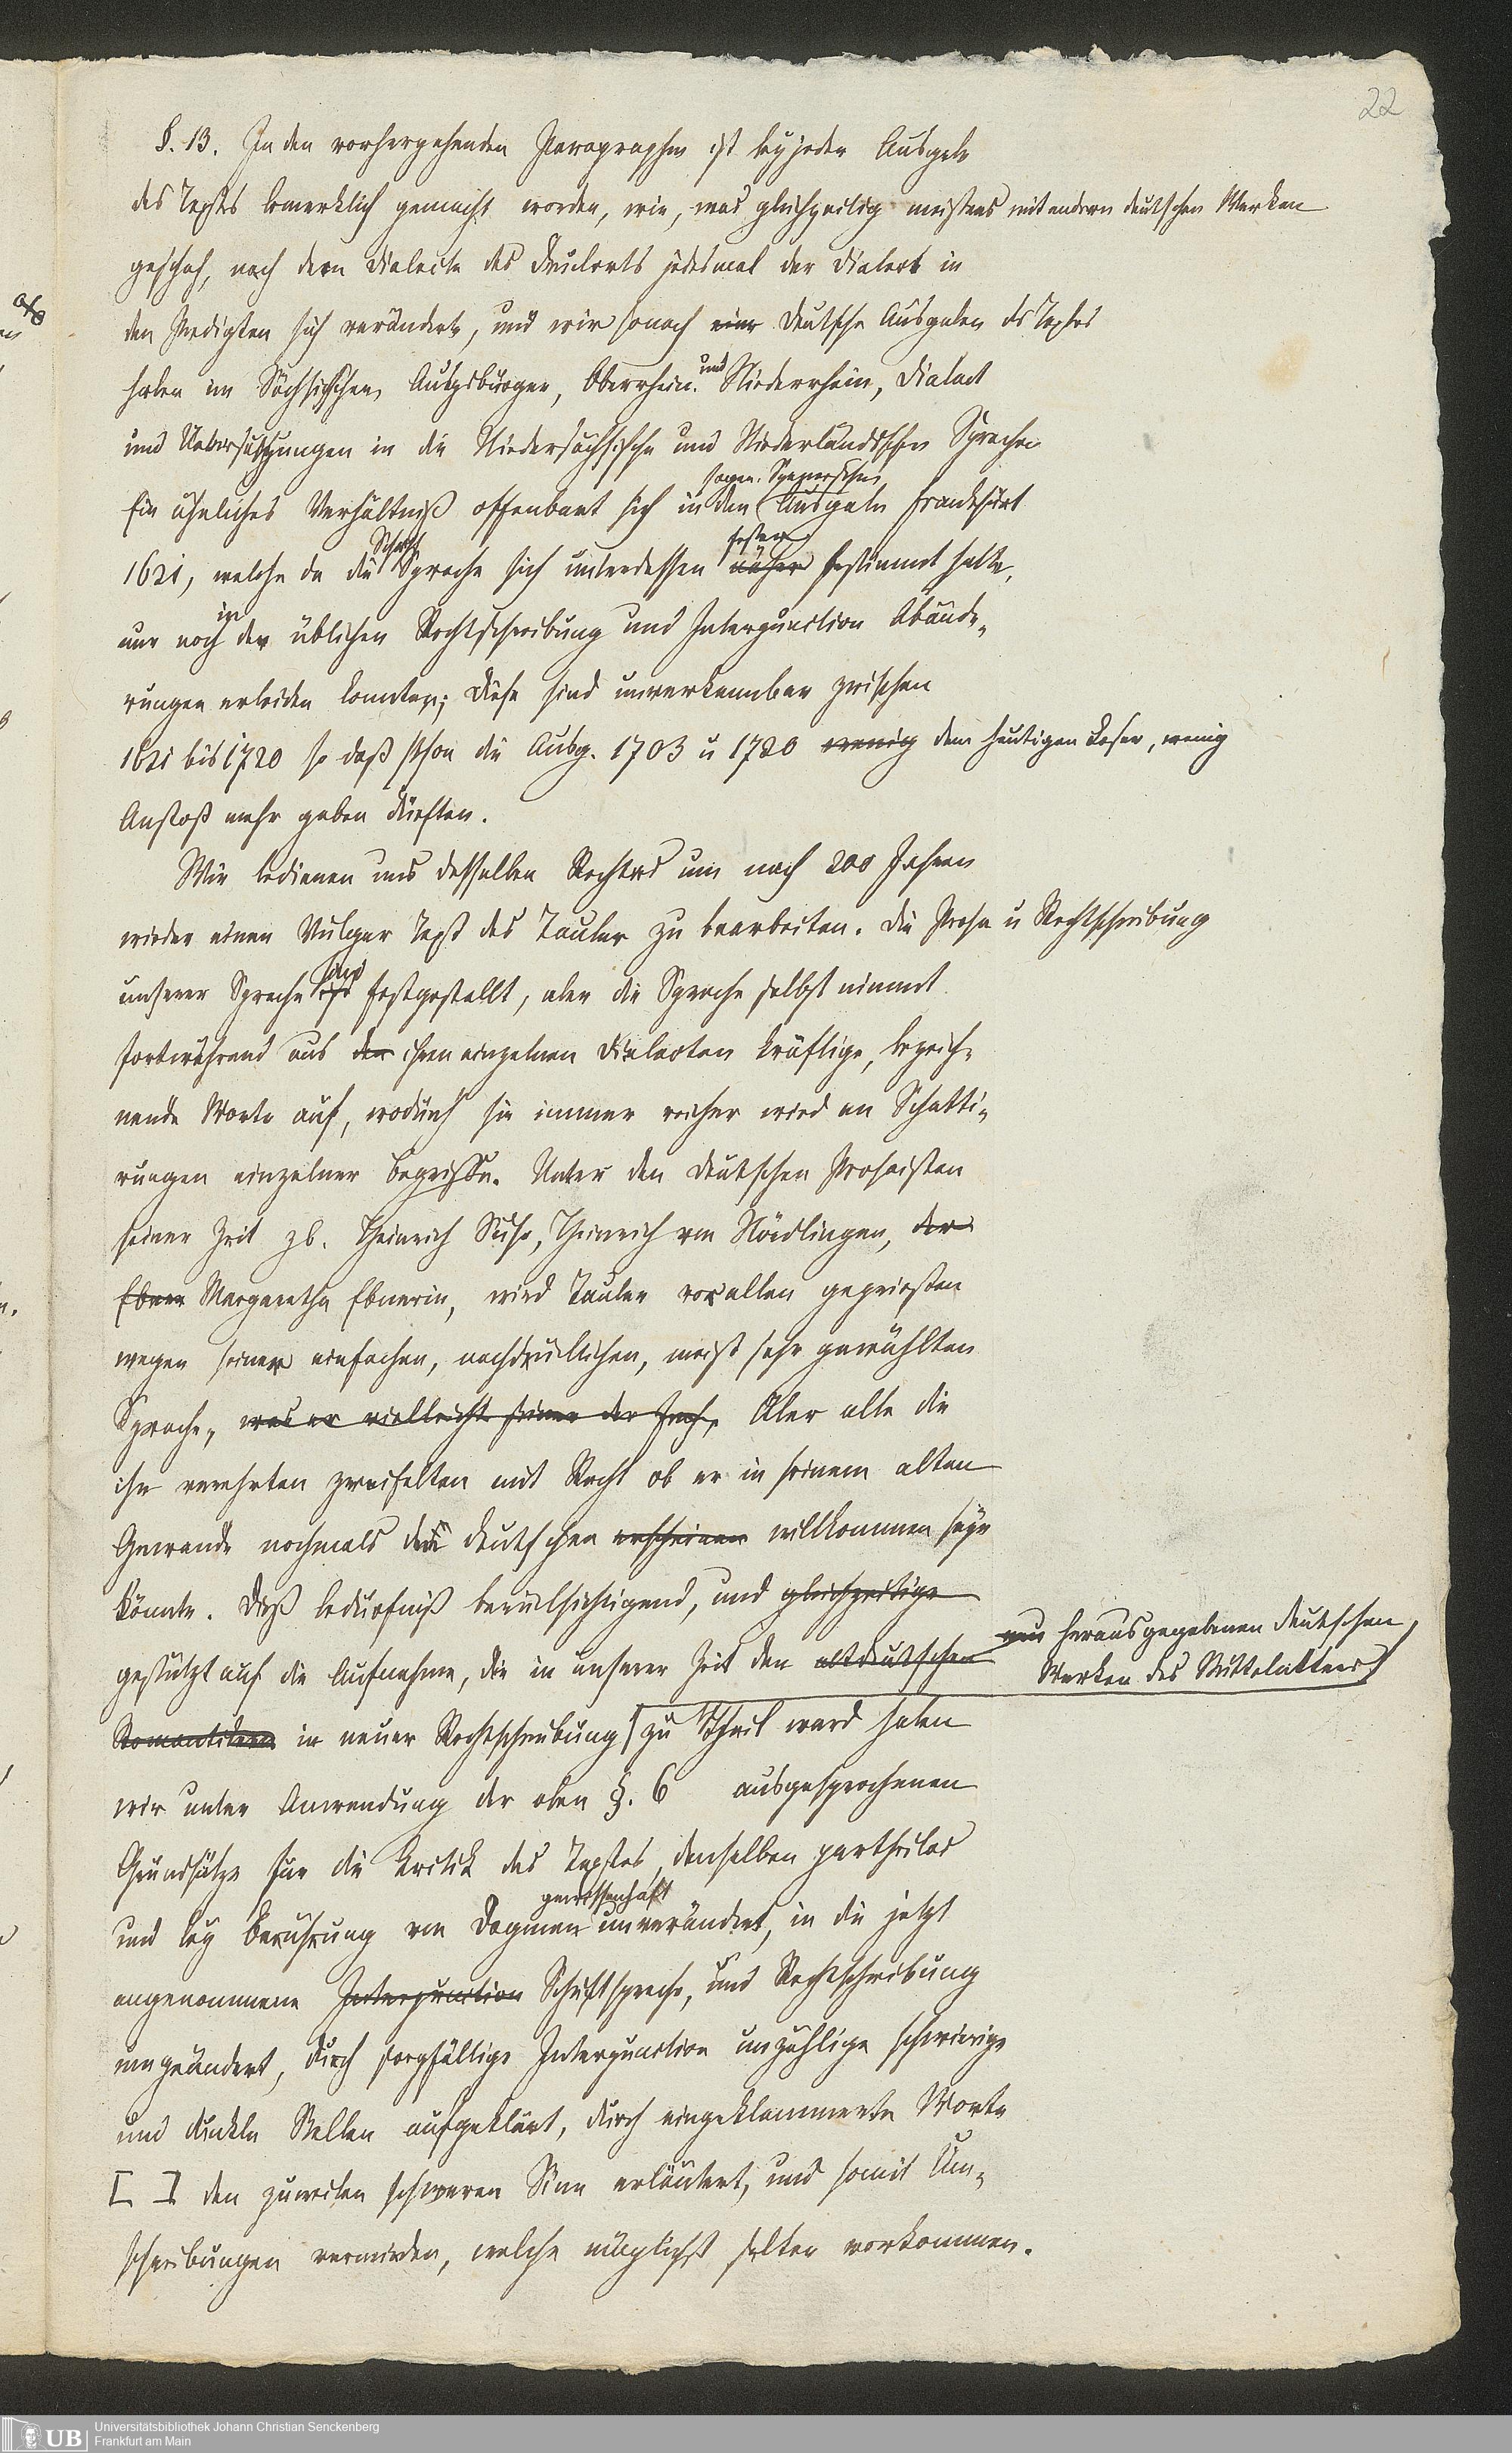 22
§. 13. In den vorhergehenden Paragraphen ist bey jeder Ausgabe
des Textes bemerklich gemacht worden, wie, was gleichzeitig meistens mit andern deutschen Werken
geschah, nach dem Dialecte des Druckorts jedesmal der Dialect in
den Predigten sich veränderte, und wir sonach eine deutsche Ausgaben des Textes
haben im Sächsischen, Augsburger, Oberrhein. und Niederrhein, Dialect
und Uebersetzungen in die Niedersächsische und Niederländische Sprache
sogen. Spenerschen
Ein ähnliches Verhältniß offenbart sich in den Ausgaben Frankfurt
Schrift fester
1621, welche da die Sprache sich unterdessen näher bestimmt hatte,
in
nur noch der üblichen Rechtschreibung und Interpunction Abände-
rungen erleiden konnten; diese sind unverkennbar zwischen
1621 bis 1720 so daß schon die Ausg. 1703 u 1720 wenig dem heutigen Leser, wenig
Anstoß mehr geben dürften.
Wir bedienen uns desselben Rechtes um nach 200 Jahren
wieder einen Vulgar Text des Tauler zu bearbeiten. Die Prosa u Rechtschreibung
sind
unserer Sprache ist festgestellt, aber die Sprache selbst nimmt
fortwährend aus den ihren einzelnen Dialecten kräftige, bezeich-
nende Worte auf, wodurch sie immer reicher wird an Schatti-
rungen einzelner Begriffe. Unter den deutschen Prosaisten
seiner Zeit zb. Heinrich Suso, Heinrich von Nördlingen, der
Ebner Margaretha Ebnerin, wird Tauler vor allen gepriesen
wegen seiner einfachen, nachdrücklichen, meist sehr gewählten
Sprache, was er vielleicht seiner der Aber alle die
ihn verehrten zweifelten mit Recht ob er in seinem alten
Gewande nochmals den Deutschen erscheinen willkommen seyn
könnte. Dieß Bedürfniß berücksichtigend, und gleichzeitige
gestützt auf die Aufnahme, die in unserer Zeit den altdeutschen
neu herausgegebenen deutschen
Werken des Mittelalters
Romantikern in neuer Rechtschreibung zu Theil ward haben
wir unter Anwendung der oben §. 6 ausgesprochenen
Grundsätze für die Kritik des Textes, denselben partheilos
gewissenhaft
und bey Berührung von Dogmen unverändert, in die jetzt
angenommene Interpunction Schriftsprache, und Rechtschreibung
umgeändert, durch sorgfältige Interpunction unzählige schwierige
und dunkle Stellen aufgeklärt, durch eingeklammerte Worte
[ ] den zuweilen schweren Sinn erläutert, und somit Um-
schreibungen vermieden, welche möglichst selten vorkommen.
UB
Universitätsbibliothek Johann Christian Senckenberg
Frankfurt am Main